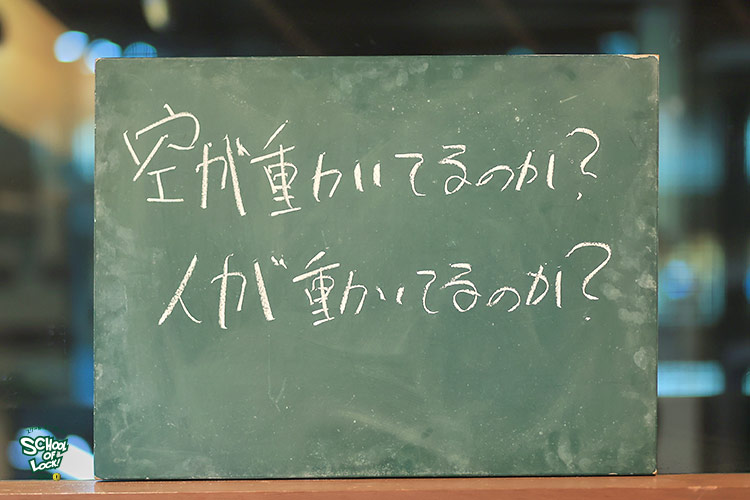 空が動いてるのか?
人が動いてるのか?
SCHOOL
OF
LOCK!